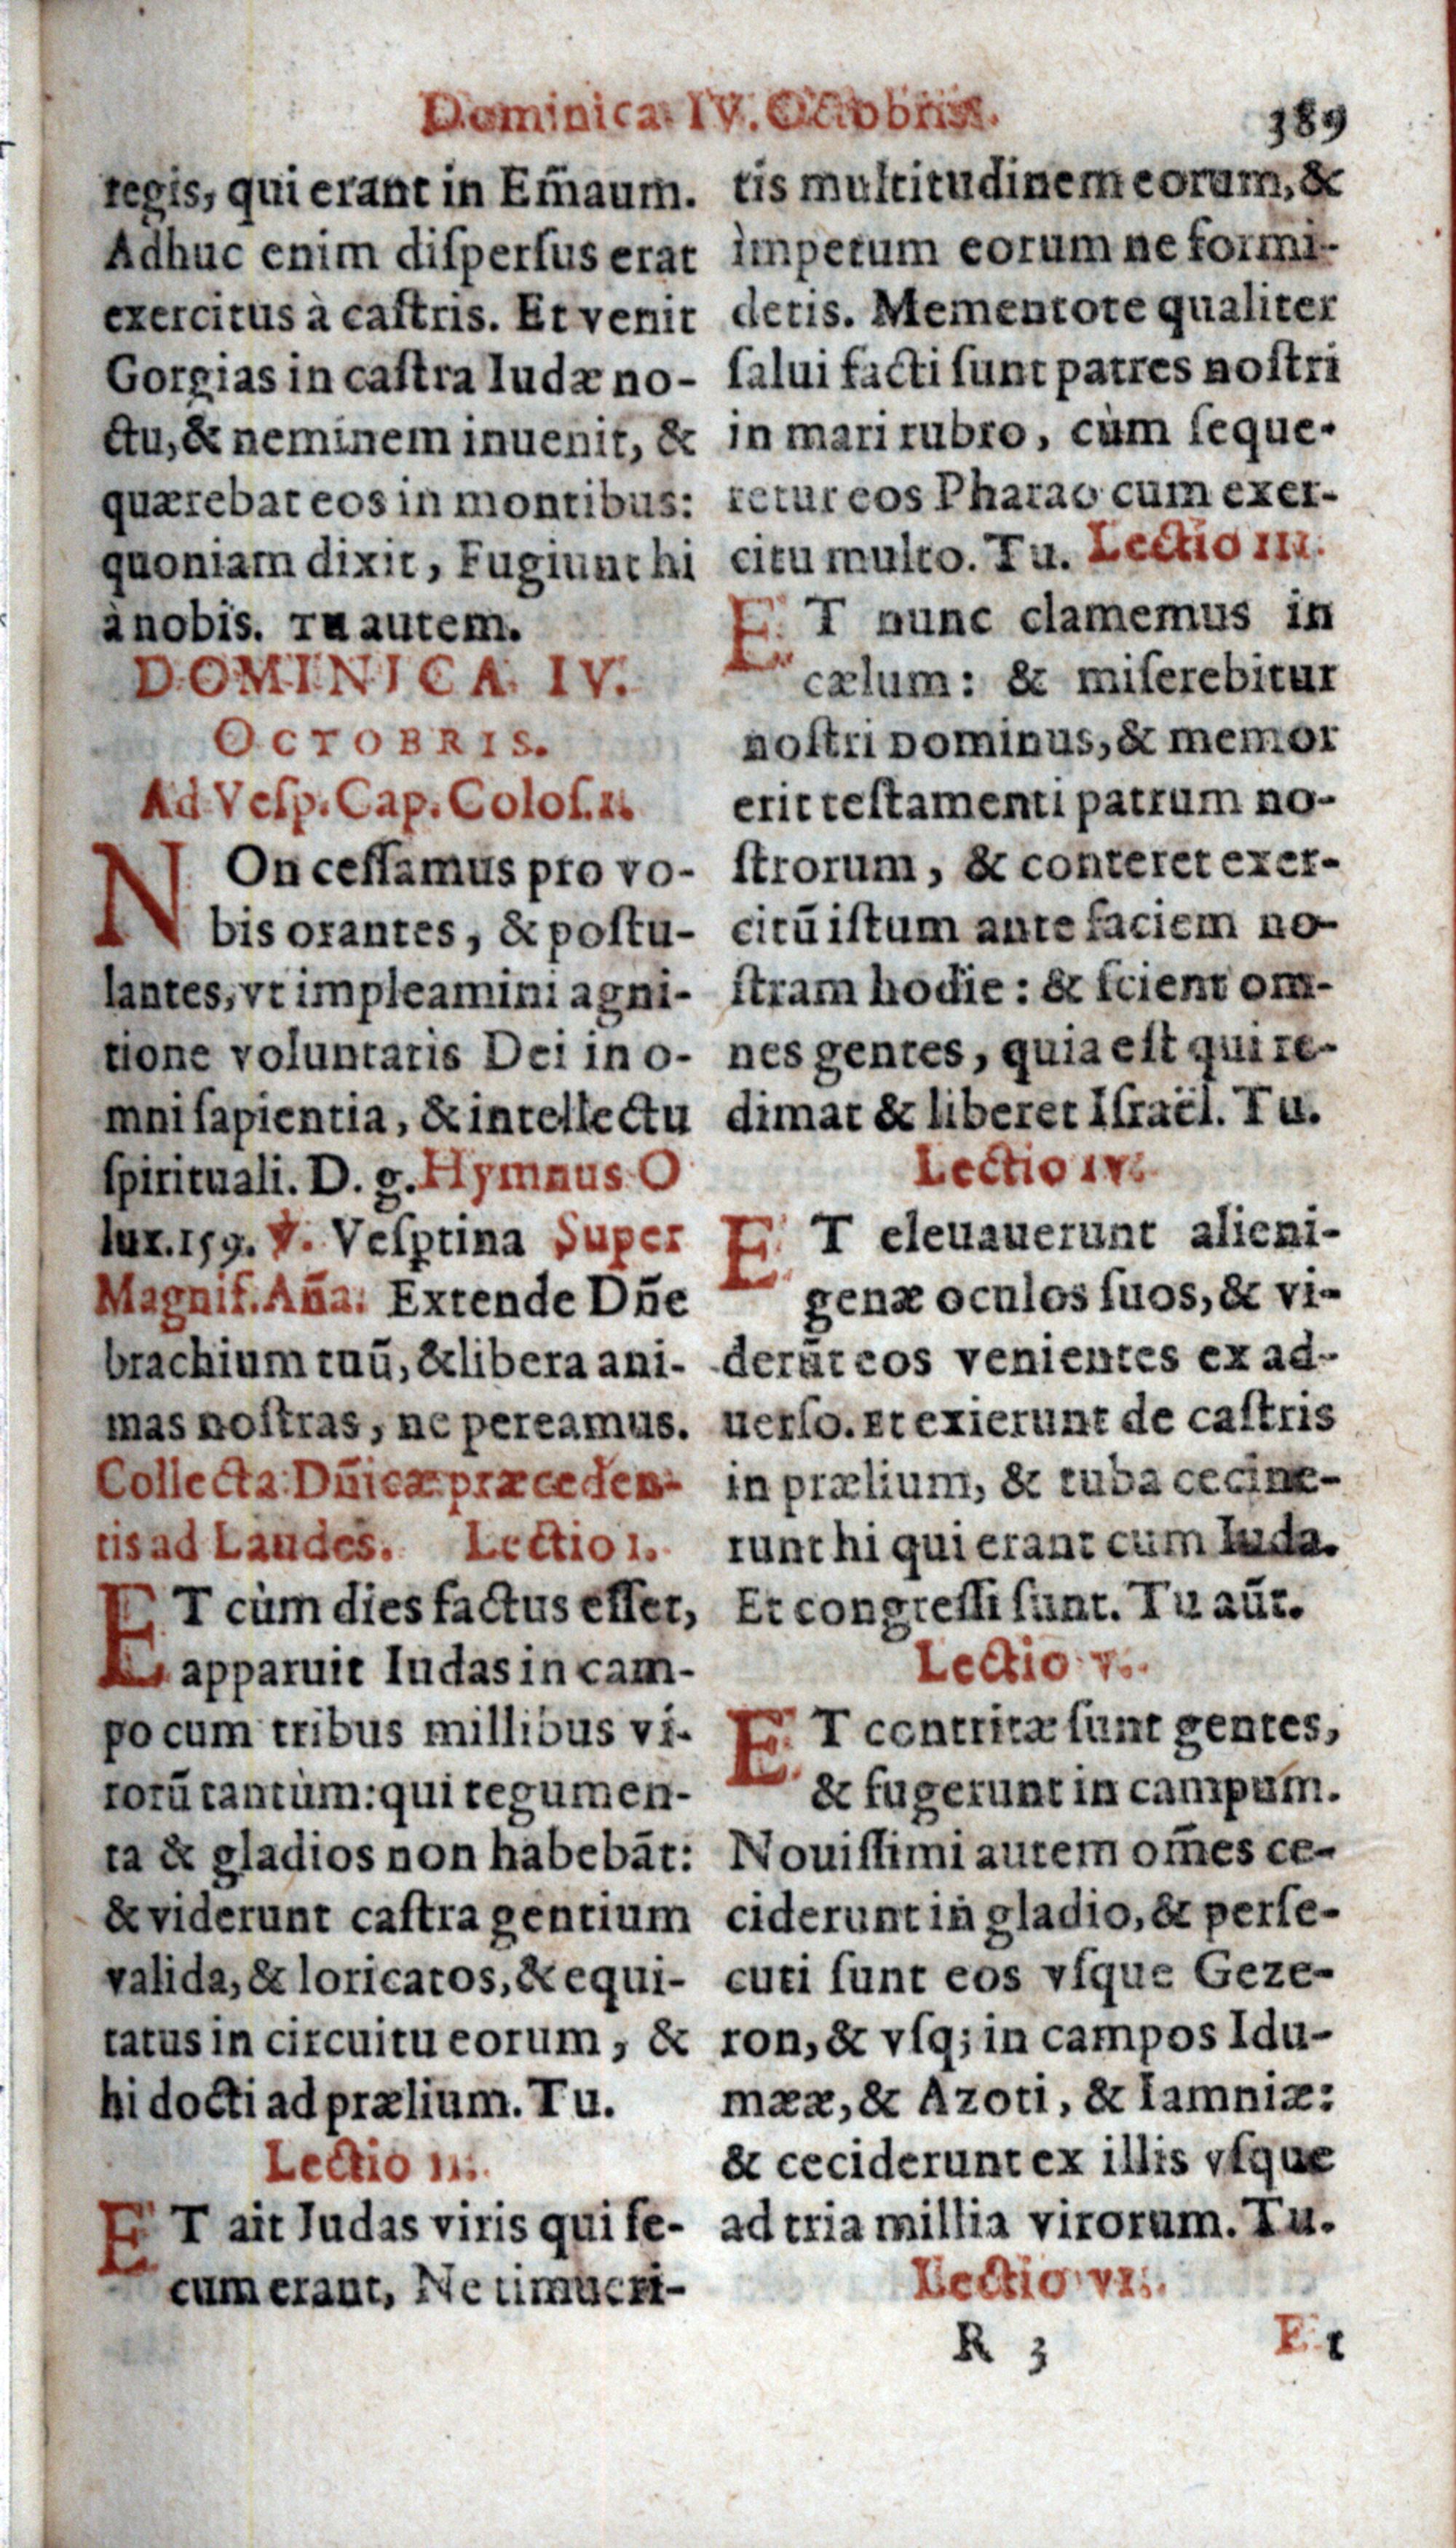 Dominica IV. Octobris. 389
regis, qui erant in Em̃aum.
Adhuc enim diſperſus erat
exercitus à caſtris. Et venit
Gorgias in caſtra Iudæ no-
ctu, & neminem inuenit, &
quærebat eos in montibus:
quoniam dixit, Fugiunt hi
à nobis. Tu autem.
DOMINICA IV.
OCTOBRIS.
Ad Veſp. Cap. Coloſ. 1.
NOn ceſſamus pro vo-
bis orantes, & poſtu-
lantes, vt impleamini agni-
tione voluntatis Dei in o-
mni ſapientia, & intellectu
ſpirituali. D. g. Hymnus O
lux. 159. ℣. Veſꝑtina Super
Magnif. Añã. Extende Dñe
brachium tuũ, & libera ani-
mas noſtras, ne pereamus.
Collecta Dñicæ præceden-
tis ad Laudes. Lectio I.
ET cùm dies factus eſſet,
apparuit Iudas in cam-
po cum tribus millibus vi-
rorũ tantùm: qui tegumen-
ta & gladios non habebãt:
& viderunt caſtra gentium
valida, & loricatos, & equi-
tatus in circuitu eorum, &
hi docti ad prælium. Tu.
Lectio II.
ET ait Judas viris qui ſe-
cum erant, Ne timueri-
tis multitudinem eorum, &
ìmpetum eorum ne formi-
detis. Mementote qualiter
ſalui facti ſunt patres noſtri
in mari rubro, cùm ſeque-
retur eos Pharao cum exer-
citu multo. Tu. Lectio III.
ET nunc clamemus in
cælum: & miſerebitur
noſtri Dominus, & memor
erit teſtamenti patrum no-
ſtrorum, & conteret exer-
citũ iſtum ante faciem no-
ſtram hodie: & ſcient om-
nes gentes, quia eſt qui re-
dimat & liberet Iſraël. Tu.
Lectio IV.
ET eleuauerunt alieni-
genæ oculos ſuos, & vi-
derũt eos venientes ex ad-
uerſo. Et exierunt de caſtris
in prælium, & tuba cecine-
runt hi qui erant cum Iuda.
Et congreſſi ſunt. Tu aũt.
Lectio V.
ET contritæ ſunt gentes,
& fugerunt in campum.
Nouiſſimi autem om̃es ce-
ciderunt in gladio, & perſe-
cuti ſunt eos vſque Geze-
ron, & vſq; in campos Idu-
mææ, & Azoti, & Iamniæ:
& ceciderunt ex illis vſque
ad tria millia virorum. Tu.
Lectio VI.
R 3 Et